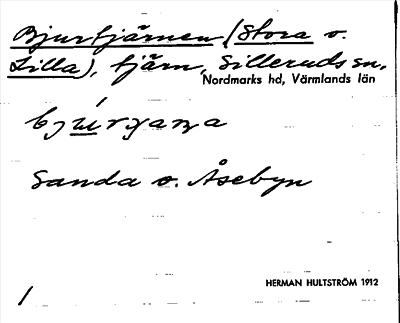 Bjurtjärnen (Stora o.
Lilla), tjärn, Sillerudssn.
Nordmarks hd, Värmlands län
Sanda o. Åsebyn
HERMAN HULTSTRÖM 1912
/